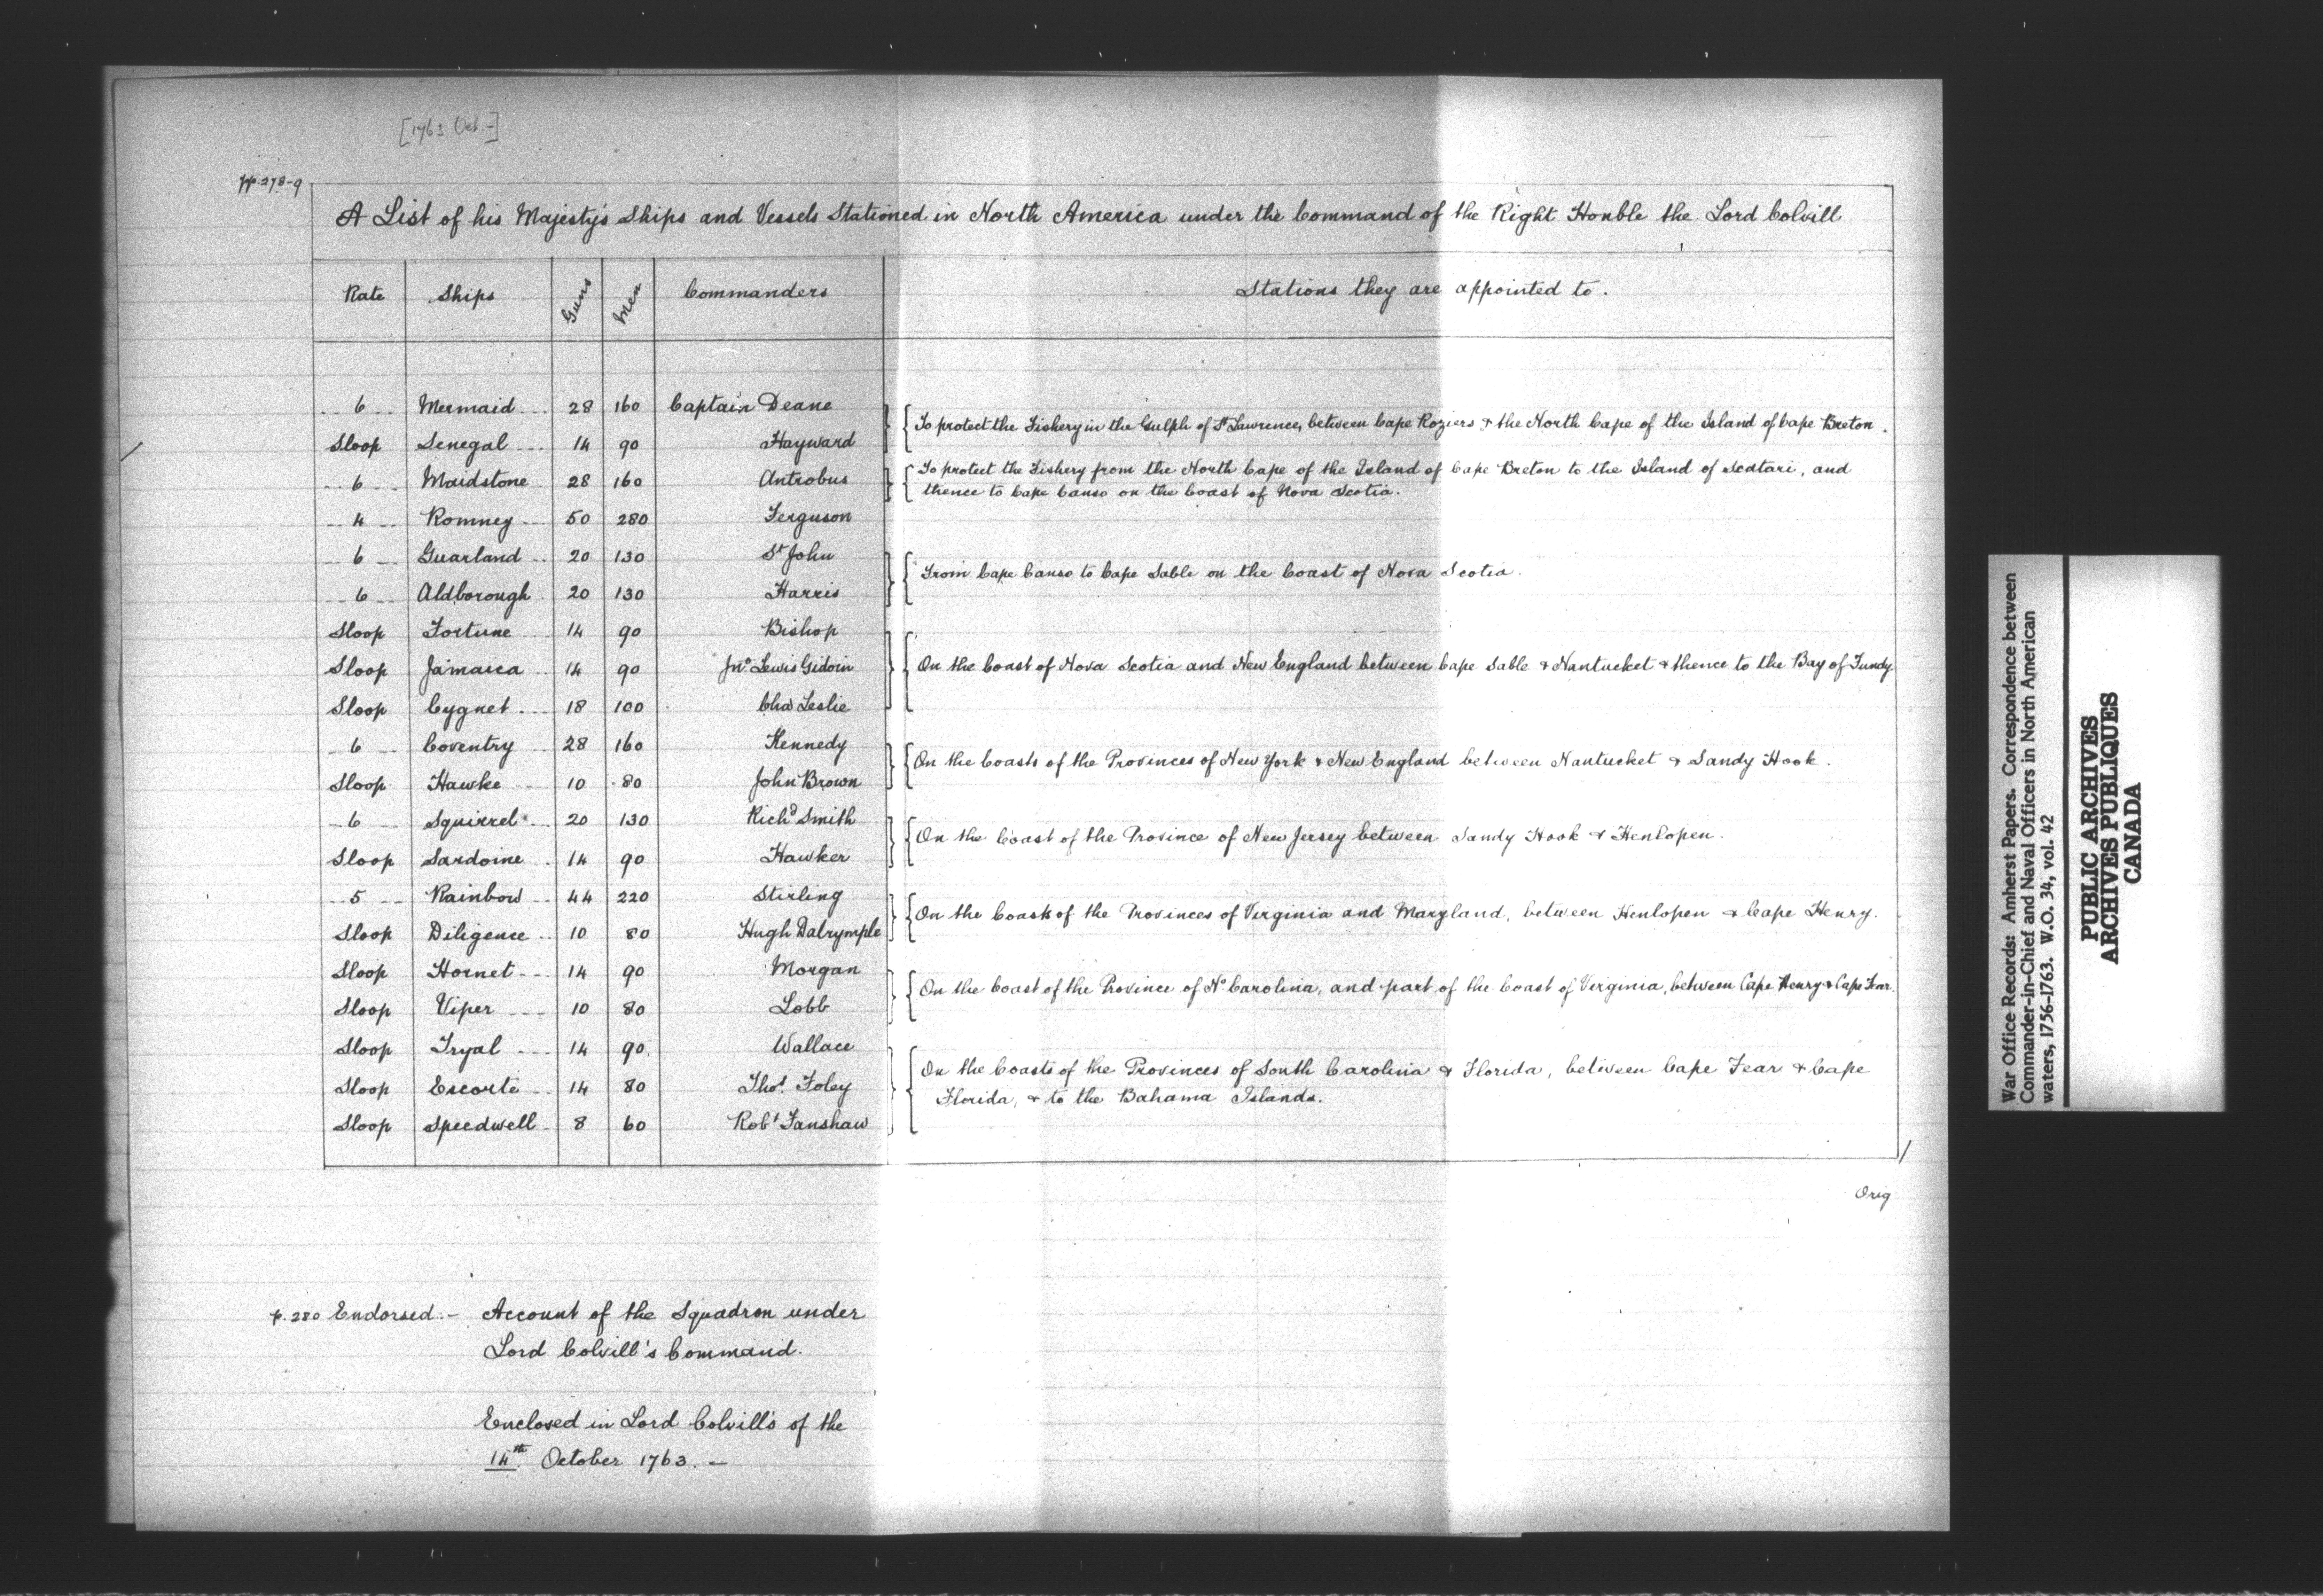 [1763 Oct. -]
pp. 278-9
A List of his Majesty's Ships and Vessels Stationed in North America under the Command of the Right Honble the Lord Colvill
Rate Ships Guns Men Commanders Stations they are appointed to.
6 Mermaid 28 160 Captain Deane
Sloop Senegal 14 90 Hayward
To protect the Fishery in the Gulph of St Lawrence, between Cape Roziers & the North Cape of the Island of Cape Breton.
6 Maidstone 28 160 Antrobus
To protect the Fishery from the North Cape of the Island of Cape Breton to the Island of Scatari, and
thence to Cape Canso on the Coast of Nova Scotia.
4 Romney 50 280 Ferguson
6 Guarland 20 130 St John
6 Aldborough 20 130 Harris
From Cape Canso to Cape Sable on the Coast of Nova Scotia.
Sloop Fortune 14 90 Bishop
Sloop Jamaica 14 90 Jno Lewis Gidoin
Sloop Cygnet 18 100 Chas Leslie
On the Coast of Nova Scotia and New England between Cape Sable & Nantucket & thence to the Bay of Fundy
6 Coventry 28 160 Kennedy
Sloop Hawke 10 80 John Brown
On the Coasts of the Provinces of New York & New England between Nantucket & Sandy Hook.
6 Squirrel 20 130 Richd Smith
Sloop Sardoine 14 90 Hawker
On the Coast of the Province of New Jersey between Sandy Hook & Henlopen.
5 Rainbow 44 220 Stirling
Sloop Diligence 10 80 Hugh Dalrymple
On the Coasts of the Provinces of Virginia and Maryland, between Henlopen & Cape Henry.
Sloop Hornet 14 90 Morgan
Sloop Viper 10 80 Lobb
On the Coast of the Province of No Carolina, and part of the Coast of Virginia, between Cape Henry & Cape Fear.
Sloop Tryal 14 90 Wallace
Sloop Escorte 14 80 Thos Foley
Sloop Speedwell 8 60 Robt Fanshaw
On the Coasts of the Provinces of South Carolina & Florida, between Cape Fear & Cape
Florida, & to the Bahama Islands.
Orig
p. 280 Endorsed. - Account of the Squadron under
Lord Colvill's Command.
Enclosed in Lord Colvill's of the
14th October 1763. -
War Office Records: Amherst Papers. Correspondence between
Commander-in-Chief and Naval Officers in North American
waters, 1756-1763. W.O. 34, vol. 42
PUBLIC ARCHIVES
ARCHIVES PUBLIQUES
CANADA